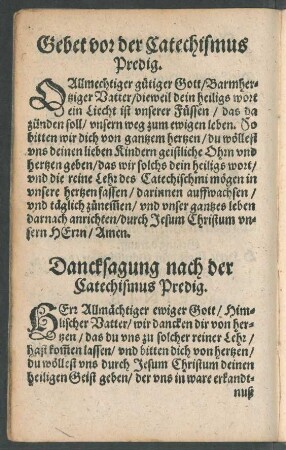 Gebet vor der Catechismus
Predig.
O Allmechtiger gütiger Gott/Barmher-
tziger Vatter/dieweil dein heiligs wort
ein Liecht ist vnserer Füssen / das da
zünden soll/ vnsern weg zum ewigen leben. So
bitten wir dich von gantzem hertzen/ du wöllest
vns deinen lieben Kindern geistliche Ohrn vnd
hertzen geben/das wir solchs dein heiligs wort/
vnd die reine Lehr des Catechismi mögen in
vnsere hertzen fassen/ darinnen auffwachsen/
vnd täglich zůnem̃en/ vnd vnser gantzes leben
darnach anrichten/durch Jesum Christum vn-
sern HErrn/ Amen.
Dancksagung nach der
Catechismus Predig.
HErr Allmächtiger ewiger Gott/ Him-
lischer Vatter/ wir dancken dir von her-
tzen/ das du vns zu solcher reiner Lehr/
hast kom̃en lassen/ vnd bitten dich von hertzen/
du wöllest vns durch Jesum Christum deinen
heiligen Geist geben/ der vns in ware erkandt-
nuß